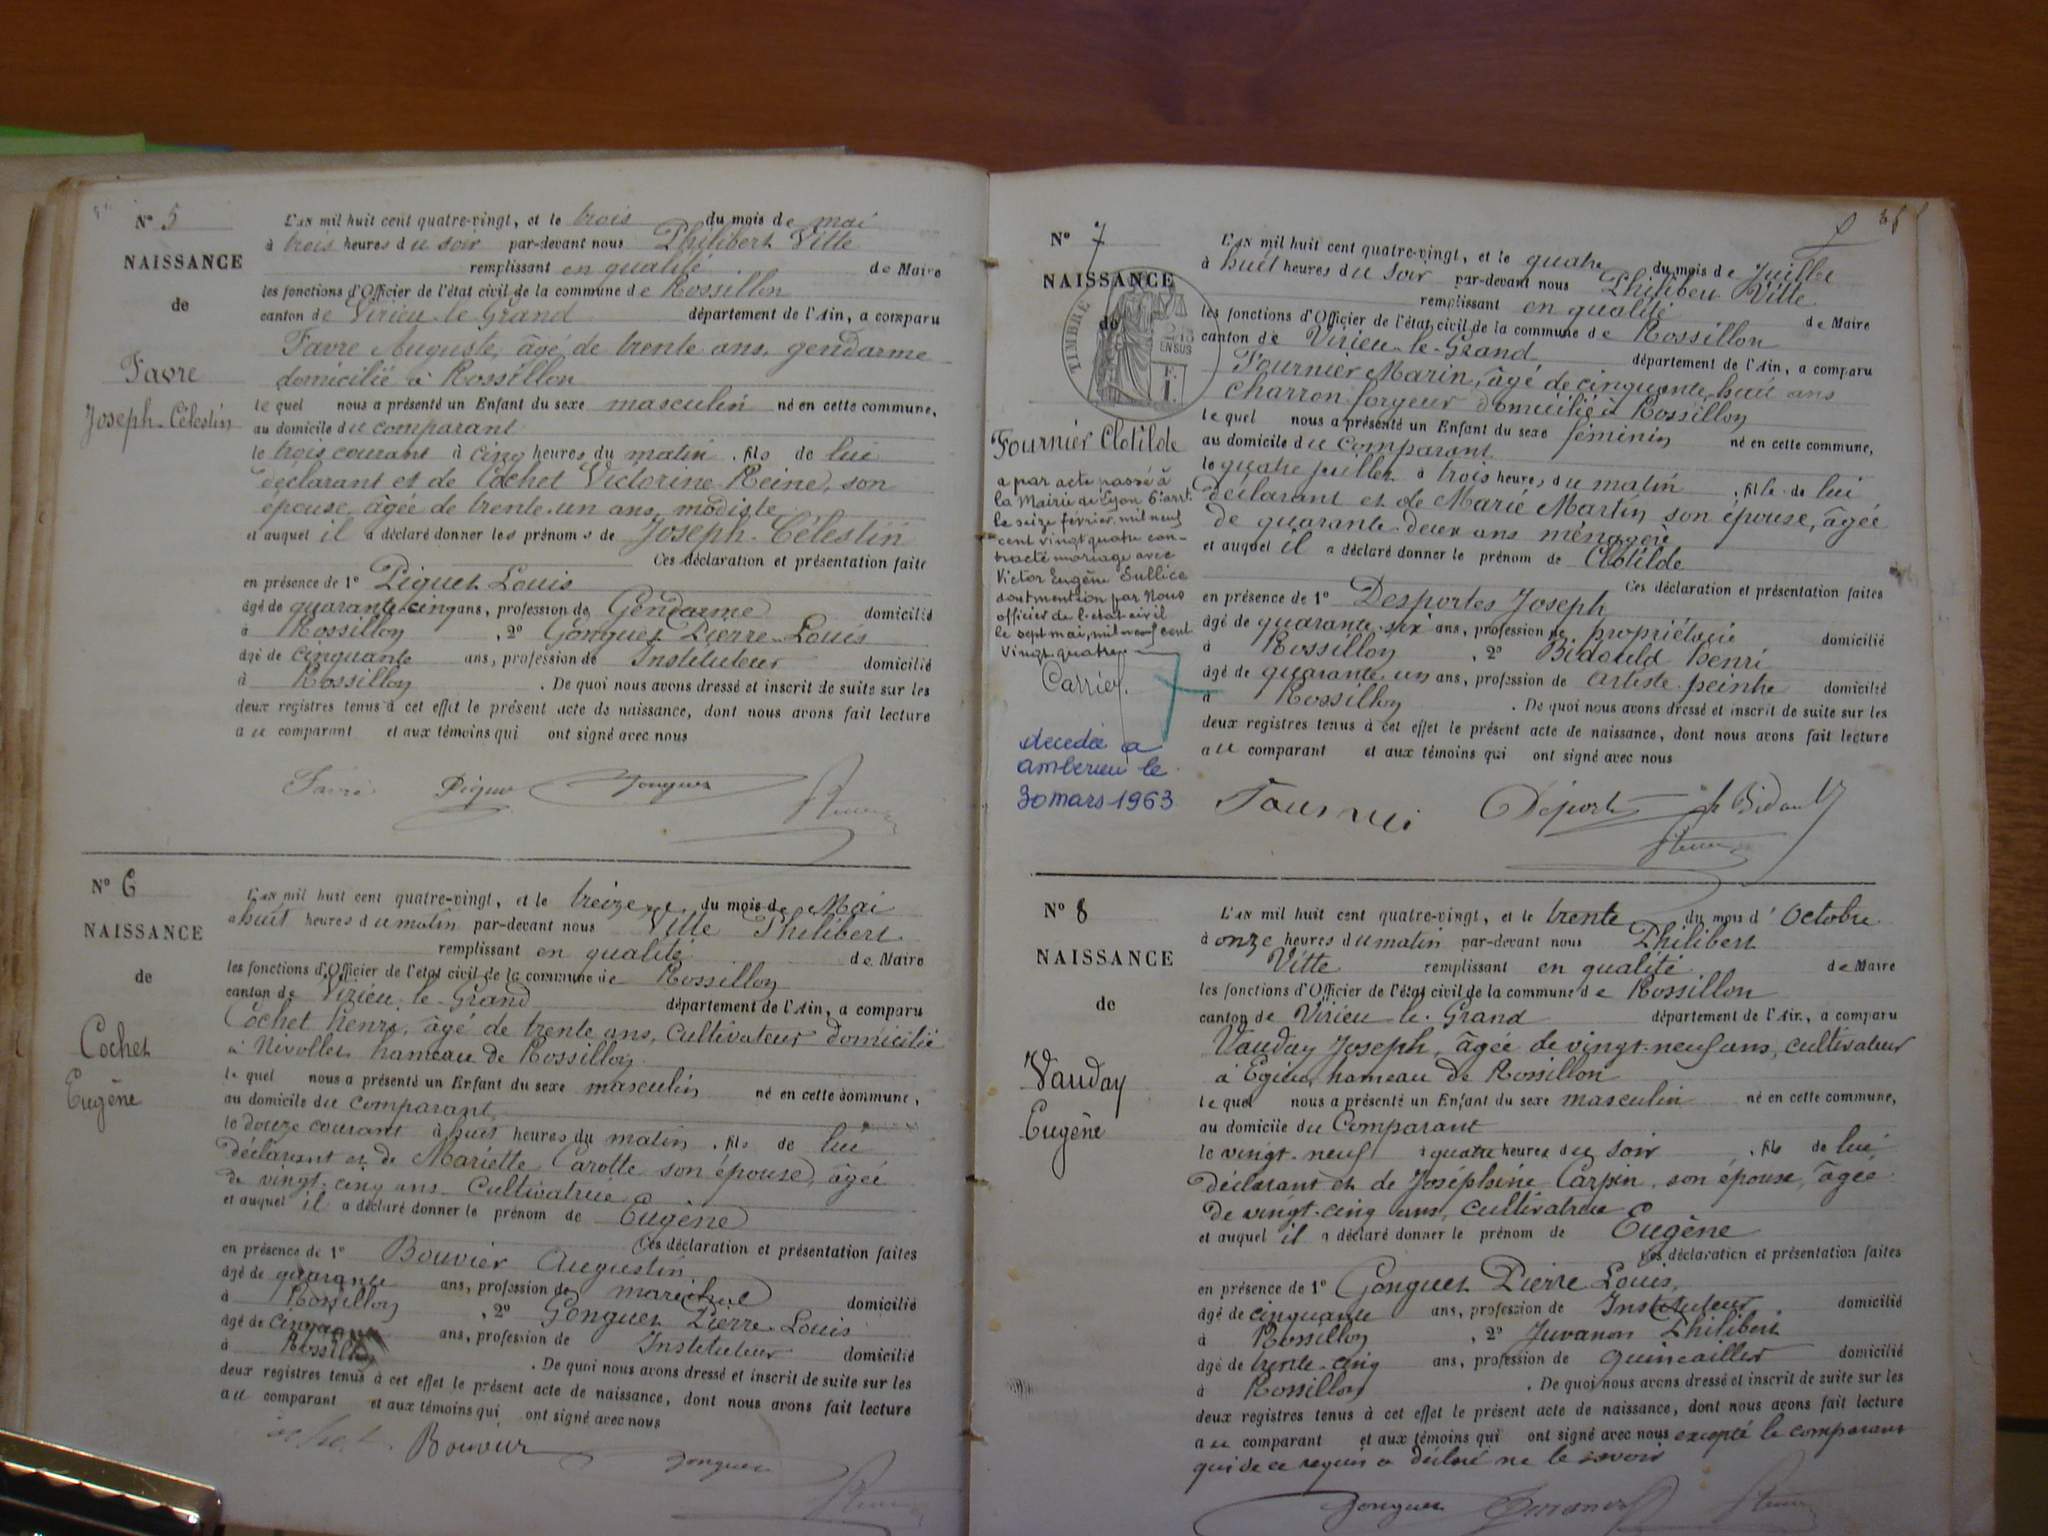 N° 5
NAISSANCE
de
Favre
Joseph-Célestin
L'AN mil huit cent quatre-vingt, et le trois du mois de mai
à trois heures du soir par-devant nous Philibert Vitte
remplissant en qualité de Maire
les fonctions d'Officier de l'état civil de la commune de Rossillon
canton de Virieu-le-Grand département de l'Ain, a comparu
Favre Auguste, âgé de trente ans, gendarme
domicilié à Rossillon
lequel nous a présenté un Enfant du sexe masculin né en cette commune,
au domicile du comparant
le trois courant à cinq heures du matin, fils de lui
déclarant et de Cochet Victorine Reine, son
épouse, âgée de trente-un ans, modiste
et auquel il a déclaré donner les prénoms de Joseph-Célestin
Ces déclaration et présentation faite
en présence de 1° Piguet Louis
âgé de quarante-cinq ans, profession de Gendarme domicilié
à Rossillon, 2° Gonguet Pierre-Louis
âgé de cinquante ans, profession de Instituteur domicilié
à Rossillon. De quoi nous avons dressé et inscrit de suite sur les
deux registres tenus à cet effet le présent acte de naissance, dont nous avons fait lecture
au comparant et aux témoins qui ont signé avec nous
Favre Piguet Gonguet
N° 6
NAISSANCE
de
Cochet
Eugène
L'AN mil huit cent quatre-vingt, et le treize du mois de Mai
à huit heures du matin par-devant nous Vitte Philibert
remplissant en qualité de Maire
les fonctions d'Officier de l'état civil de la commune de Rossillon
canton de Virieu-le-Grand département de l'Ain, a comparu
Cochet henri, âgé de trente ans, cultivateur domicilié
à Nivollet hameau de Rossillon
lequel nous a présenté un Enfant du sexe masculin né en cette commune,
au domicile du comparant
le douze courant à huit heures du matin, fils de lui
déclarant et de Mariette Carotte son épouse, âgée
de vingt-cinq ans cultivatrice
et auquel il a déclaré donner le prénom de Eugène
Ces déclaration et présentation faites
en présence de 1° Bouvier Augustin
âgé de quarante ans, profession de maréchal domicilié
à Rossillon, 2° Gonguet Pierre-Louis
âgé de cinquante ans, profession de Instituteur domicilié
à Rossillon. De quoi nous avons dressé et inscrit de suite sur les
deux registres tenus à cet effet le présent acte de naissance, dont nous avons fait lecture
au comparant et aux témoins qui ont signé avec nous
Bouvier Gonguet
N° 7
NAISSANCE
de
TIMBRE
Fournier Clotilde
a par acte passé à
la Mairie de Lyon 6e arrt
le seize février mil neuf
cent vingt quatre con-
tracté mariage avec
Victor Eugène Sullice
dont mention par Nous
officier de l'état civil
le sept mai mil neuf cent
vingt quatre
Carrier
décédée à
ambérieu le
30 mars 1963
L'AN mil huit cent quatre-vingt, et le quatre du mois de Juillet
à huit heures du soir par-devant nous Philibert Vitte
remplissant en qualité de Maire
les fonctions d'Officier de l'état civil de la commune de Rossillon
canton de Virieu-le-Grand département de l'Ain, a comparu
Fournier Marin, âgé de cinquante huit ans
charron forgeur domicilié à Rossillon
lequel nous a présenté un Enfant du sexe féminin né en cette commune,
au domicile du comparant
le quatre juillet à trois heures du matin, fille de lui
déclarant et de Marie Martin son épouse, âgée
de quarante-deux ans ménagère
et auquel il a déclaré donner le prénom de Clotilde
Ces déclaration et présentation faites
en présence de 1° Desportes Joseph
âgé de quarante-six ans, profession de propriétaire domicilié
à Rossillon, 2° Bidauld henri
âgé de quarante un ans, profession de artiste peintre domicilié
à Rossillon. De quoi nous avons dressé et inscrit de suite sur les
deux registres tenus à cet effet le présent acte de naissance, dont nous avons fait lecture
au comparant et aux témoins qui ont signé avec nous
N° 8
NAISSANCE
de
Vauday
Eugène
L'AN mil huit cent quatre-vingt, et le trente du mois d'Octobre
à onze heures du matin par-devant nous Philibert
Vitte remplissant en qualité de Maire
les fonctions d'Officier de l'état civil de la commune de Rossillon
canton de Virieu-le-Grand département de l'Ain, a comparu
Vauday Joseph, âgée de vingt-neuf ans, cultivateur
à Egieu, hameau de Rossillon
lequel nous a présenté un Enfant du sexe masculin né en cette commune,
au domicile du Comparant
le vingt-neuf à quatre heures du soir, fils de lui
déclarant et de Joséphine Carpin, son épouse, âgée
de vingt-cinq ans, cultivatrice
et auquel il a déclaré donner le prénom de Eugène
Ces déclaration et présentation faites
en présence de 1° Gonguet Pierre Louis,
âgé de cinquante ans, profession de Instituteur domicilié
à Rossillon, 2° Juvanon Philibert
âgé de trente-cinq ans, profession de quincailler domicilié
à Rossillon. De quoi nous avons dressé et inscrit de suite sur les
deux registres tenus à cet effet le présent acte de naissance, dont nous avons fait lecture
au comparant et aux témoins qui ont signé avec nous excepté le comparant
qui de ce requis a déclaré ne le savoir
Gonguet Juvanon